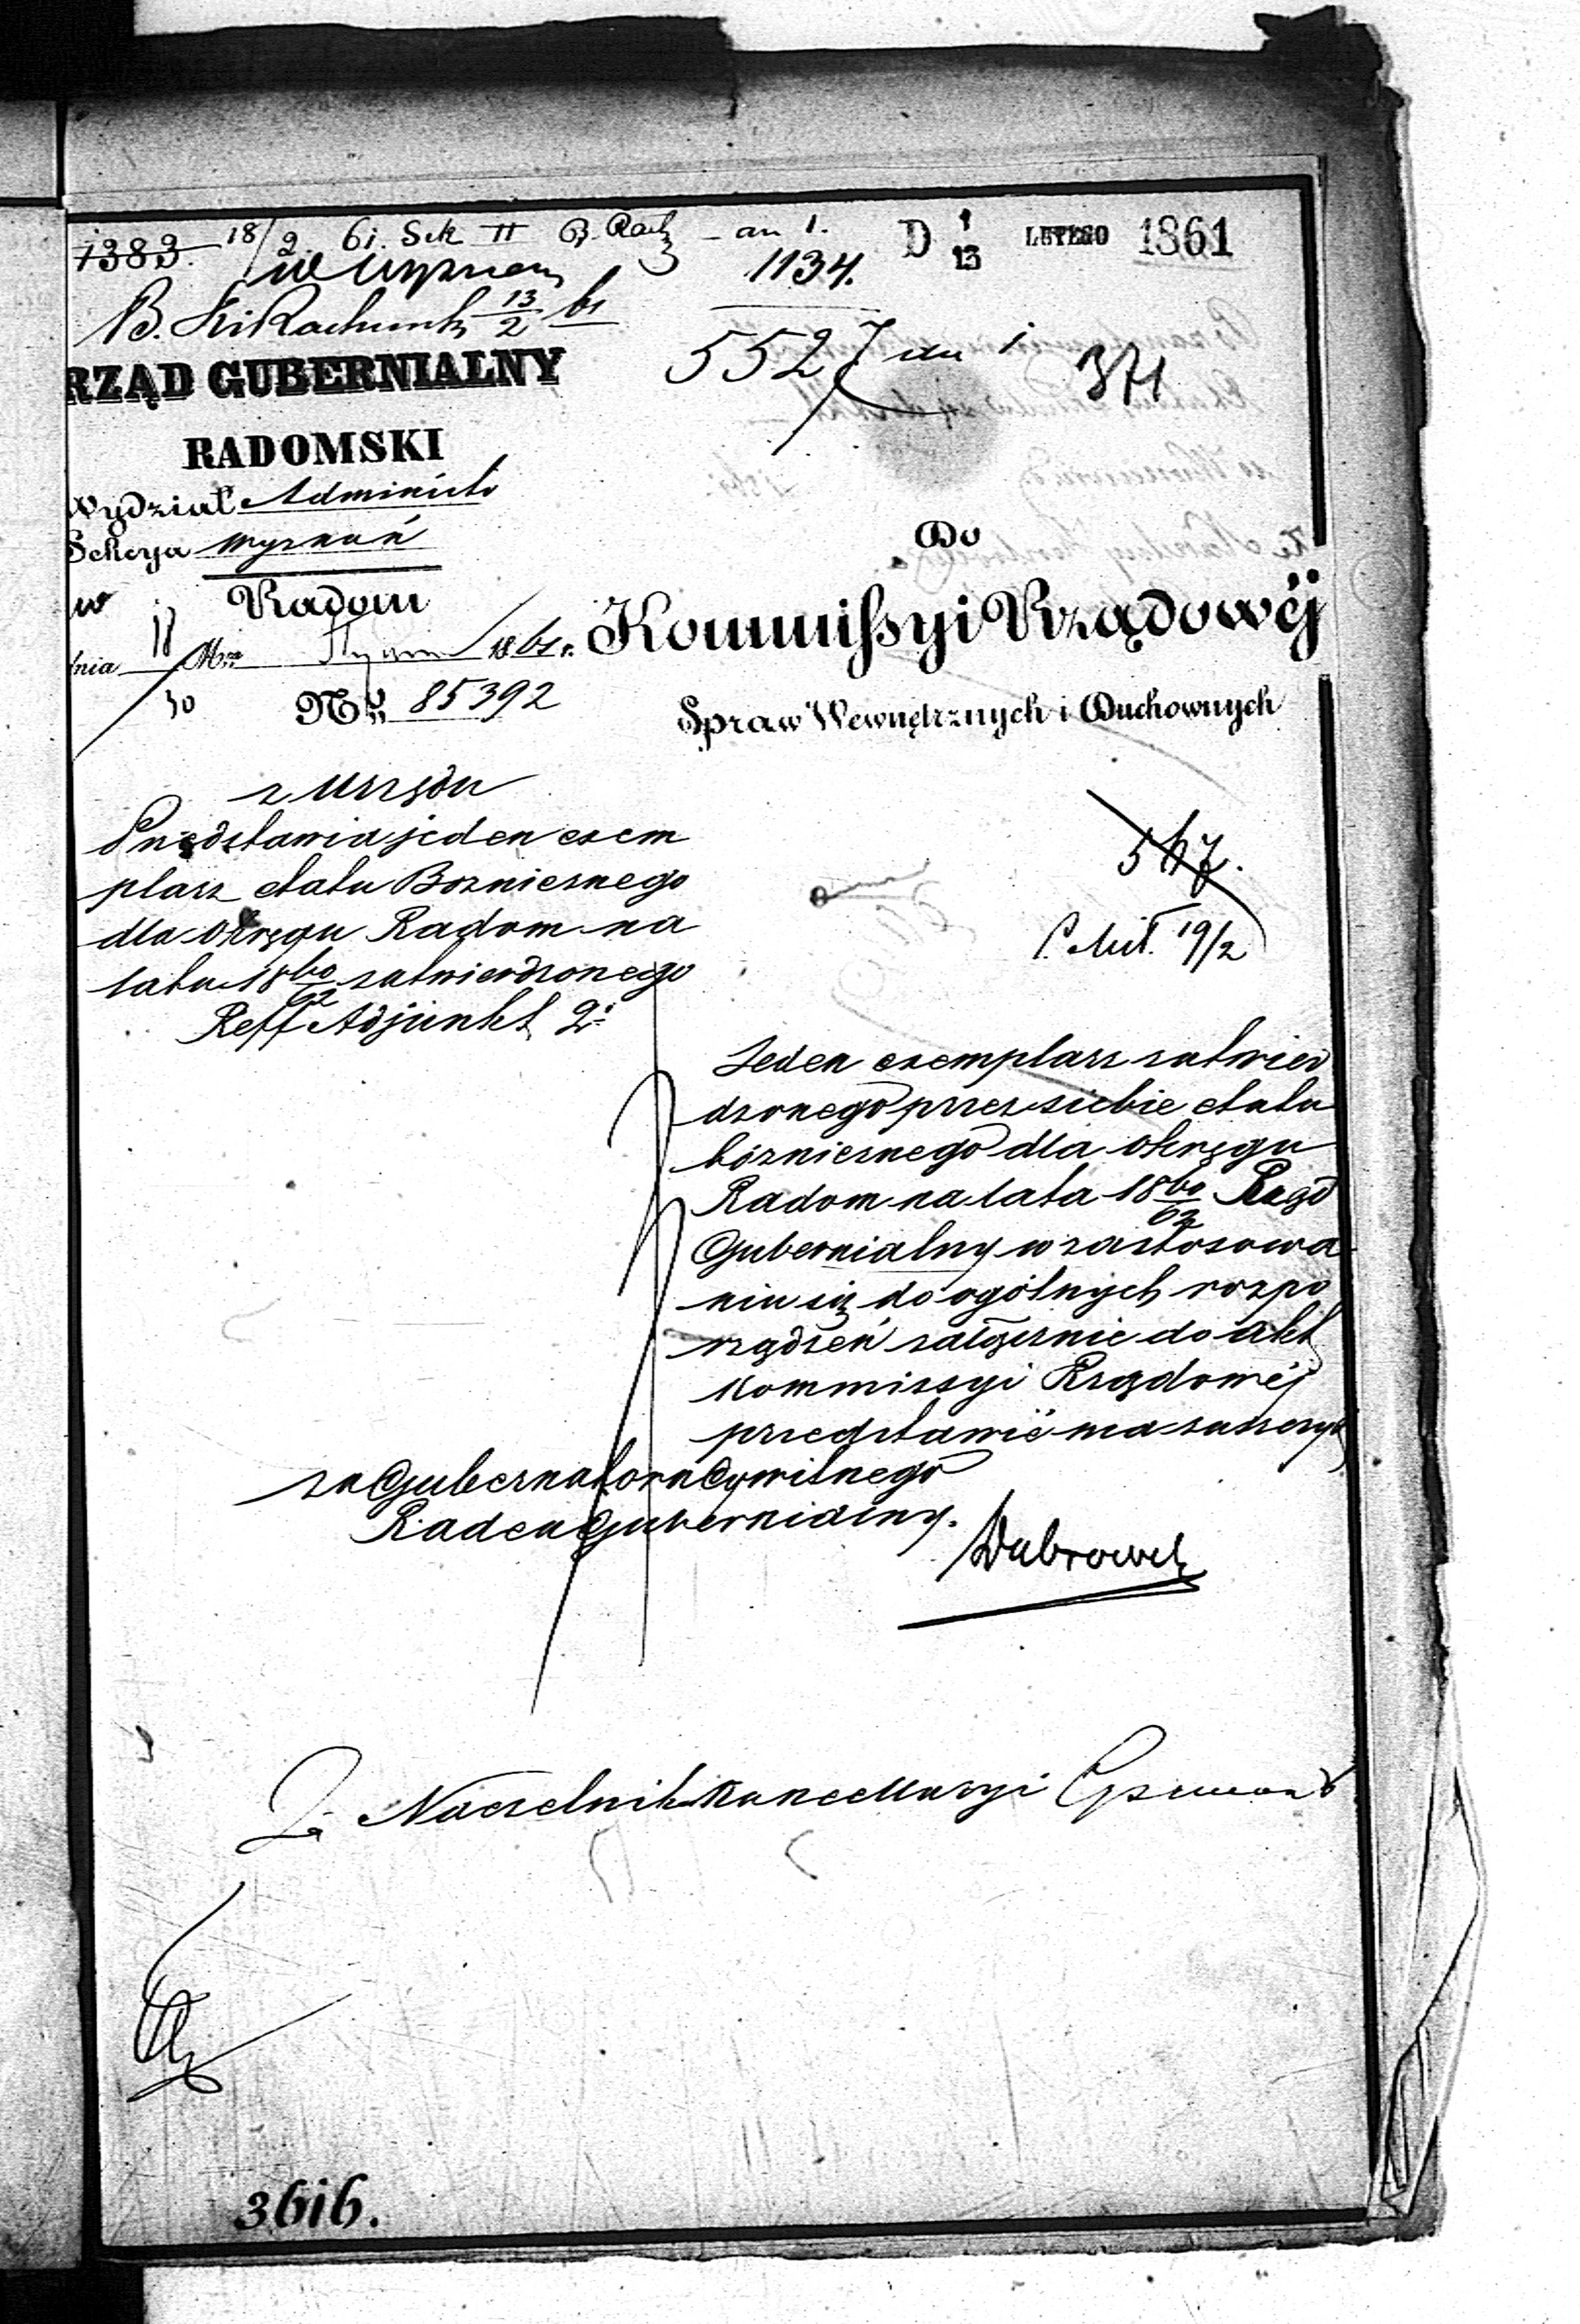 1383. 18/2 61. Sek II B. Rach - an 1.
1134.
D 1/13 LUTEGO 1861
B. Ski Rachunk 13/2 61
5527 an 1
371
RZĄD GUBERNIALNY
RADOMSKI
Wydział Administr
Sekcya Wyznań
w Radom
dnia 18/30 Mca Stycznia 1861 r.
No 85392
Do
Kommissyi Rządowéj
Spraw Wewnętrznych i Duchownych
z Urzędu
Przedstawia jeden exem
plarz etatu Boznicznego
dla Okręgu Radom na
lata 1860/62 zatwierdzonego
Reff Adjunkt 2i
567.
19/2
Jeden exemplarz zatwier
dzonego przez siebie etatu
bózniczнego dla Okręgu
Radom na lata 1860/62 Rząd
Gubernialny w zastosowa
niu się do ogólnych rozpo
rządzeń załącznie do akt
Kommissyi Rządowéj
przedstawić ma zaszczyt
za Gubernatora Cywilnego
Radca Gubernialny.
Dąbrowsk
Za Naczelnik Kancellaryi
3616.